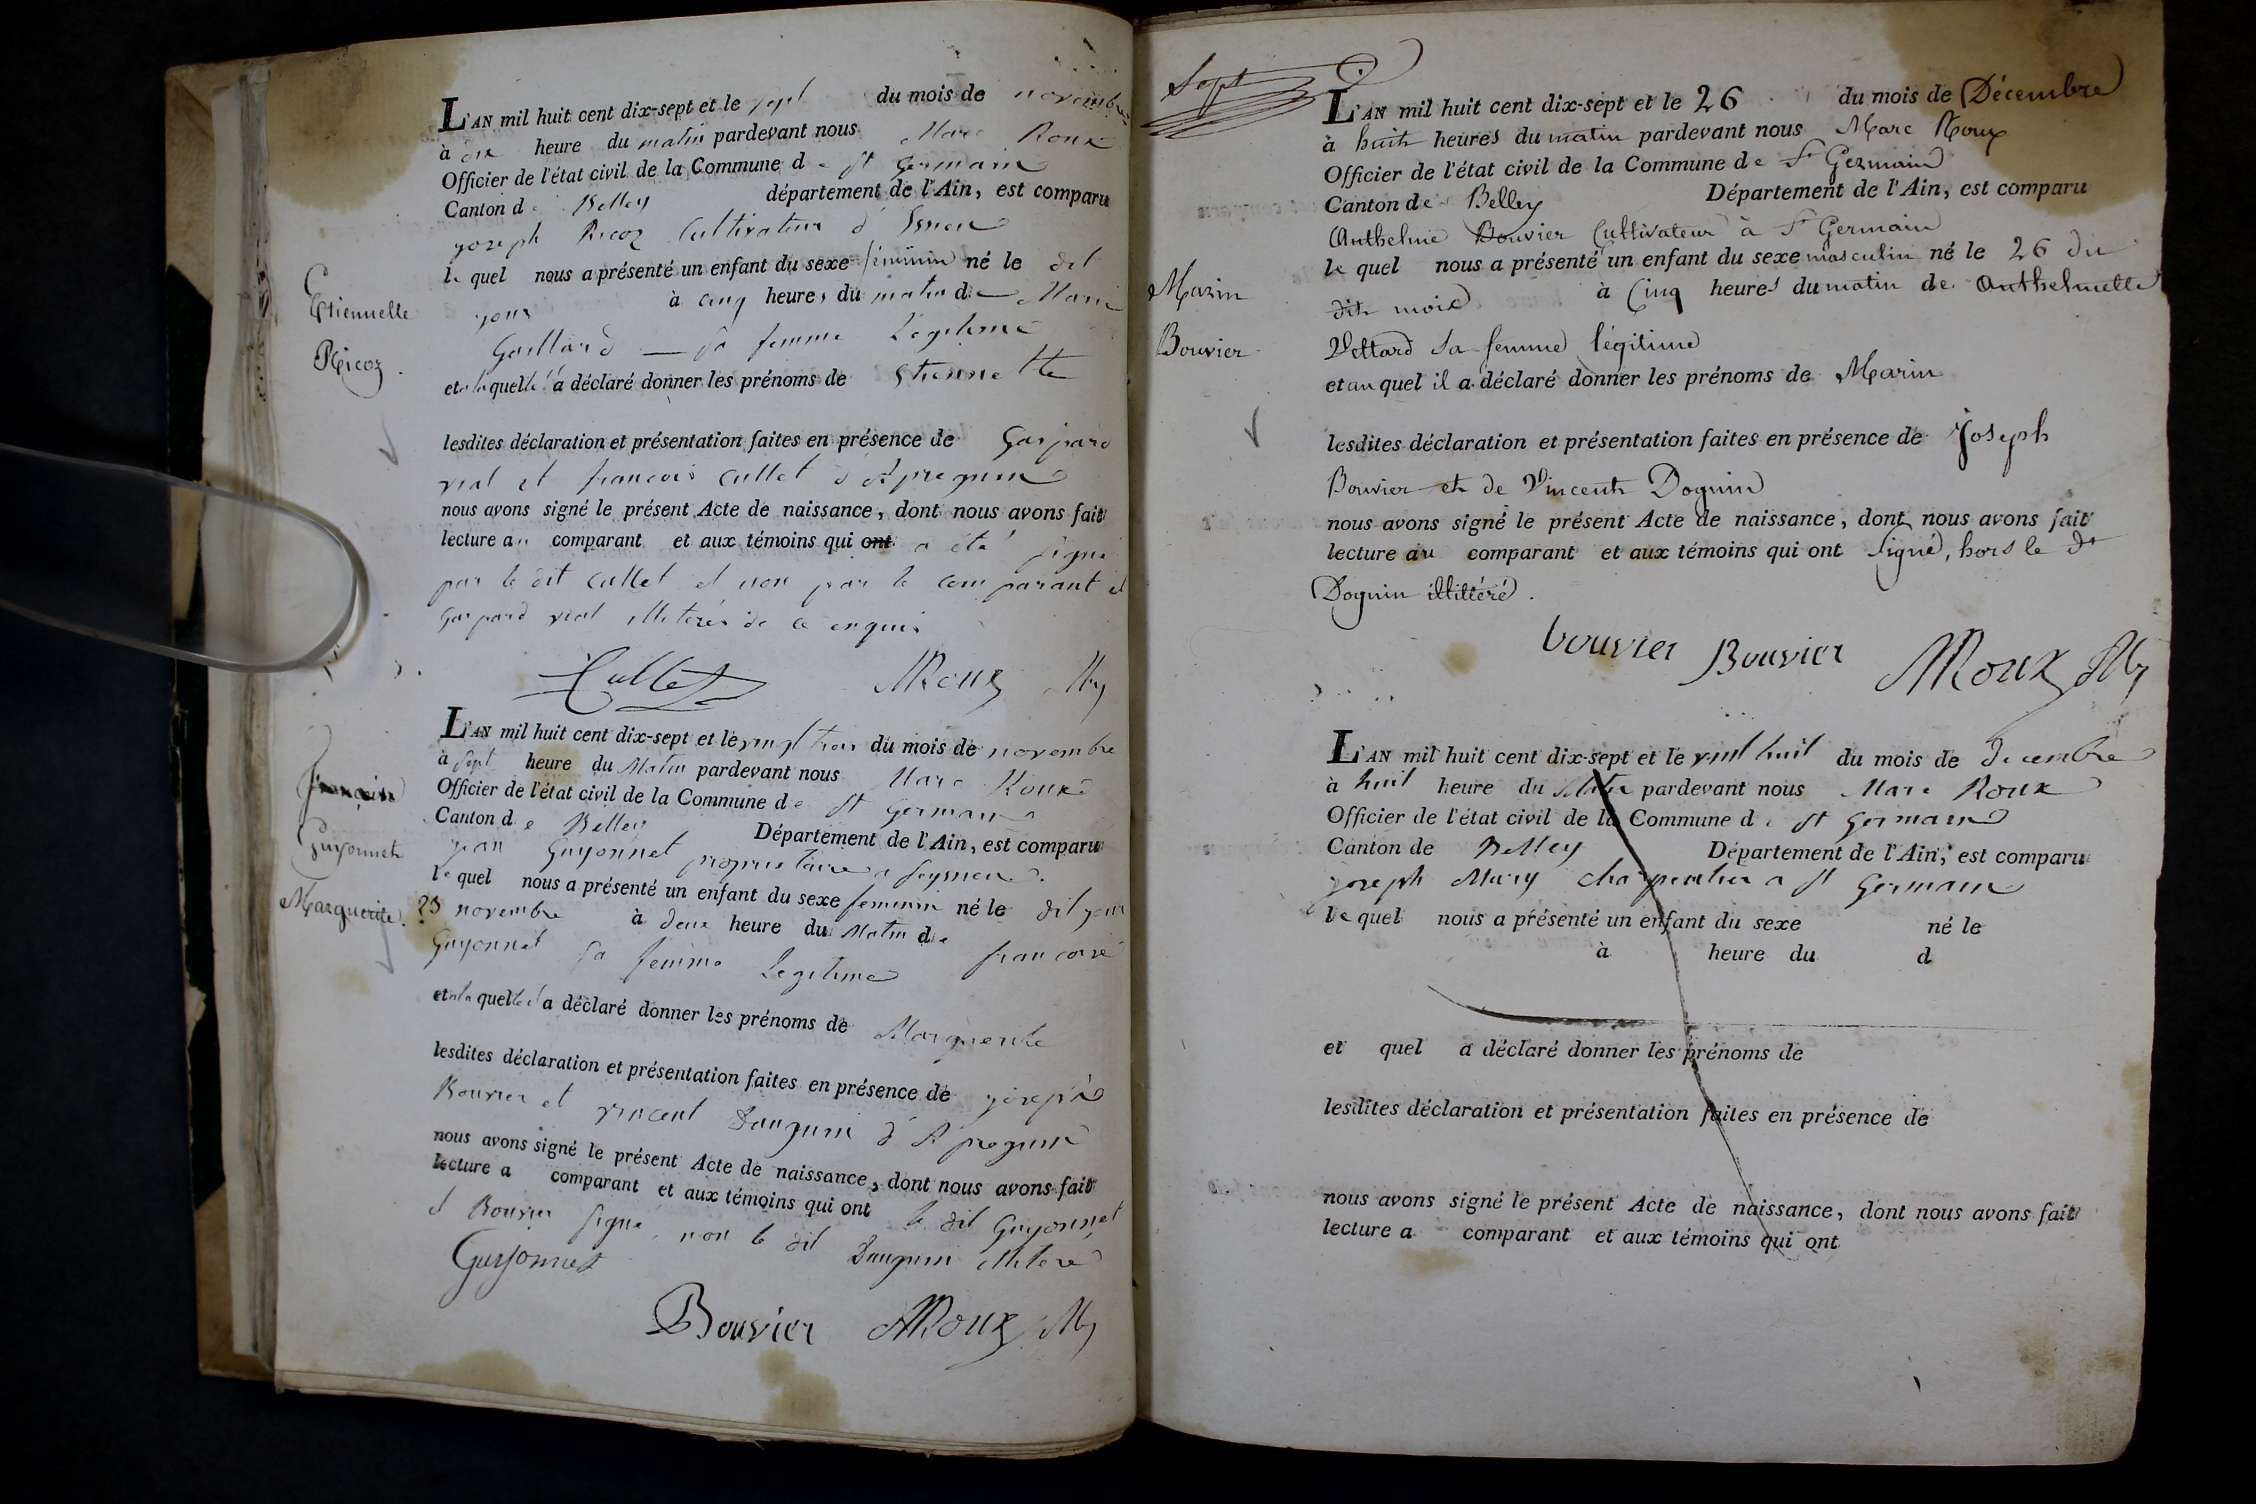 L'AN mil huit cent dix-sept et le sept du mois de novembre
à dix heure du matin pardevant nous Marc Roux
Officier de l'état civil de la Commune de st germain
Canton de Belley département de l'Ain, est comparu
joseph Ricoz Cultivateur d'
le quel nous a présenté un enfant du sexe féminin né le dit
jour à cinq heures du matin de Marie
Gaillard sa femme Légitime
et a laquelle il a déclaré donner les prénoms de Etiennette
Etiennette
Ricoz
lesdites déclaration et présentation faites en présence de Gaspard
vial et francois Cullet d
nous avons signé le présent Acte de naissance, dont nous avons fait
lecture au comparant et aux témoins qui ont a été signé
par le dit Cullet et non par le comparant et
gaspard vial illiterés de ce enquis
Cullet MRoux My
L'AN mil huit cent dix-sept et le vingt trois du mois de novembre
à sept heure du Matin pardevant nous Marc Roux
Officier de l'état civil de la Commune de st germain
Canton de Belley Département de l'Ain, est comparu
jean Guyonnet proprietaire a
le quel nous a présenté un enfant du sexe feminin né le dit jour
23 novembre à deux heure du Matin de francoise
Guyonnet sa femme Legitime
et a la quelle il a déclaré donner les prénoms de Marguerite
Françoise
Guyonnet
Marguerite.
lesdites déclaration et présentation faites en présence de joseph
Bouvier et vincent Dauguin d
nous avons signé le présent Acte de naissance, dont nous avons fait
lecture a comparant et aux témoins qui ont le dit Guyonnet
et Bouvier signé, non le dit Dauguin illiteré
Guyonnet
Bouvier MRoux My
Sept
L'AN mil huit cent dix-sept et le 26 du mois de Décembre
à huit heures du matin pardevant nous Marc Roux
Officier de l'état civil de la Commune de St Germain
Canton de Belley Département de l'Ain, est comparu
Anthelme Bouvier Cultivateur à St Germain
le quel nous a présenté un enfant du sexe masculin né le 26 du
dit mois à Cinq heures du matin de Anthelmette
Vettard sa femme légitime
et au quel il a déclaré donner les prénoms de Marin
Marin
Bouvier
lesdites déclaration et présentation faites en présence de Joseph
Bouvier et de Vincent Doguin
nous avons signé le présent Acte de naissance, dont nous avons fait
lecture au comparant et aux témoins qui ont signé, hors le dt
Doguin illittéré.
bouvier Bouvier MRoux My
L'AN mil huit cent dix-sept et le vint huit du mois de decembre
à huit heure du Matin pardevant nous Marc Roux
Officier de l'état civil de la Commune de st germain
Canton de Belley Département de l'Ain, est comparu
joseph Mury charpentier a st germain
le quel nous a présenté un enfant du sexe né le
à heure du d
et quel a déclaré donner les prénoms de
lesdites déclaration et présentation faites en présence de
nous avons signé le présent Acte de naissance, dont nous avons fait
lecture a comparant et aux témoins qui ont